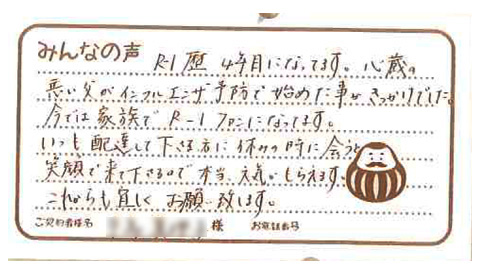 みんなの声
R-1歴 4年目になってます。心蔵の
悪い父がインフルエンザ予防で始めた事がきっかけでした。
今では家族で R-1 ファンになってます。
いつも配達して下さる方に休みの時に会うと
笑顔で来て下さるので本当、元気がもらえます。
これからも宜しく お願い致します。
ご契約者様名 様 お電話番号